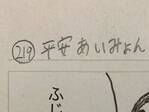 219 平安あいみょん
ふじ